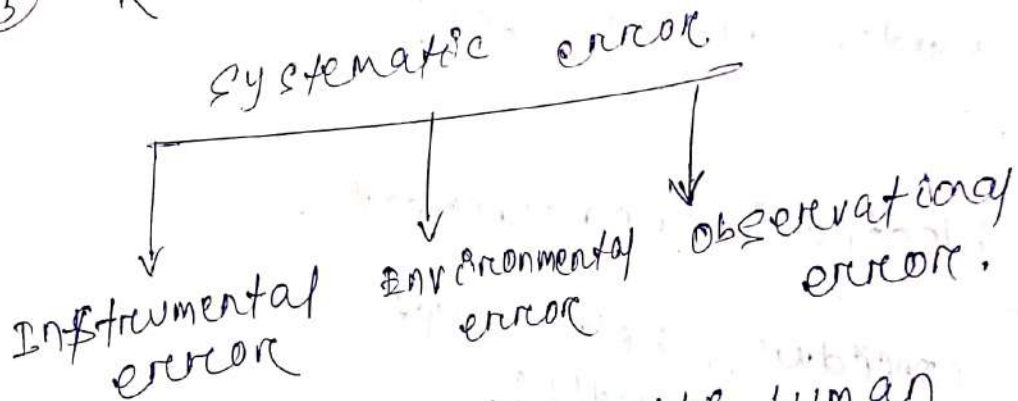 Systematic error.
Instrumental
error
Environmental
error
Observational
error.
human